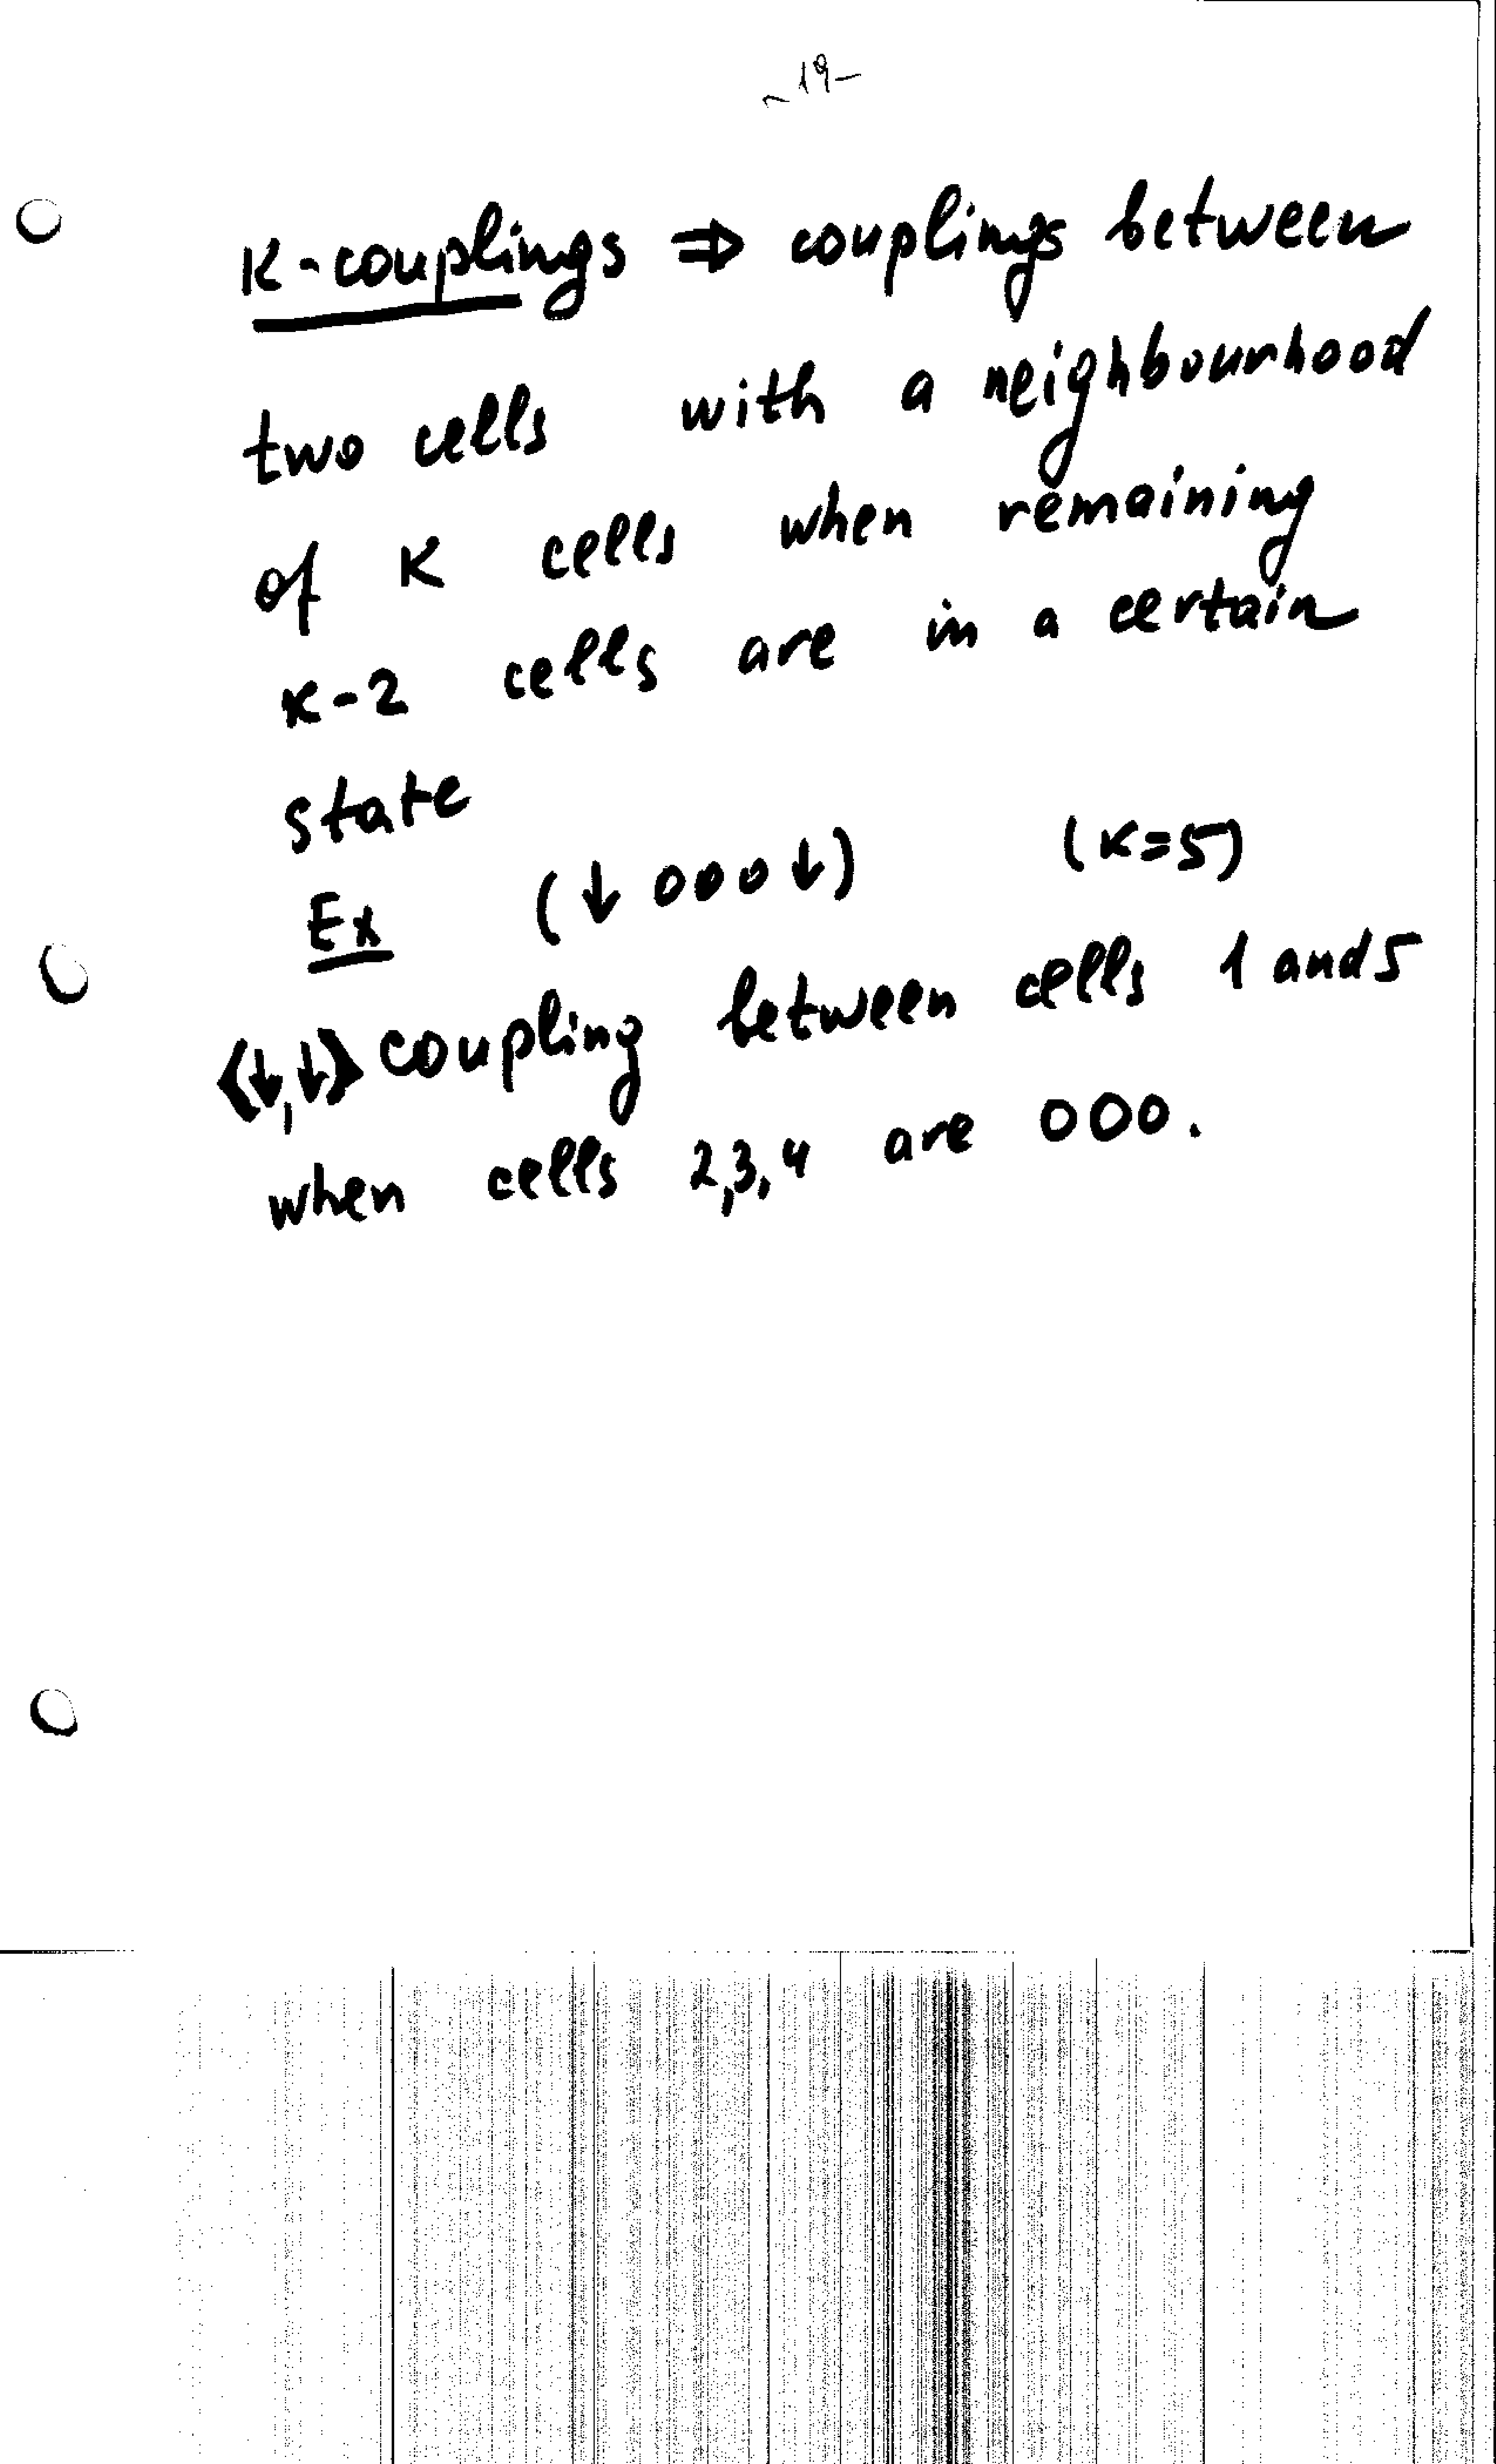 -19-
K-couplings ⇒ couplings between
two cells with a neighbourhood
of K cells when remaining
K-2 cells are in a certain
state
Ex (↓ 000 ↓) (K=5)
<↓,↓> coupling between cells 1 and 5
when cells 2,3,4 are 000.